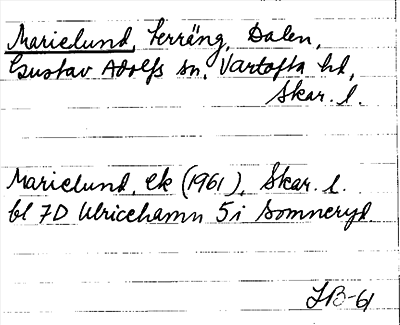 Marielund, Terräng, Dalen,
Gustav Adolfs sn, Vartofta hd,
Skar. l.
Marielund, ek (1961), Skar. l.
bl 7D Ulricehamn 5i Sömneryd.
IB-61